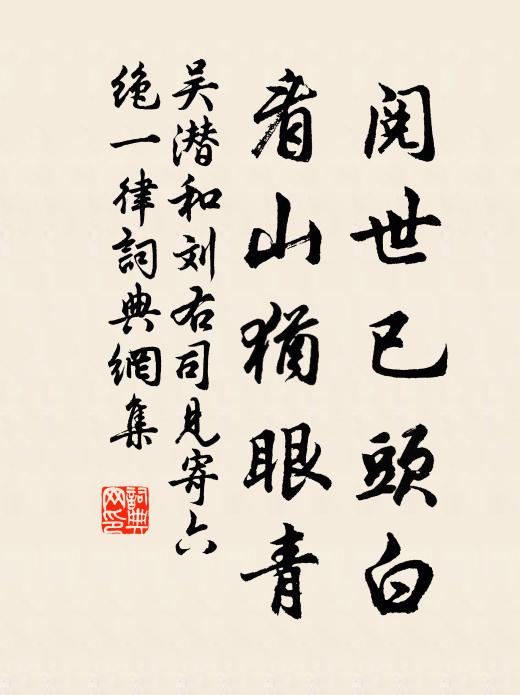 阅世已頭白
看山猶眼青
吴潜和刘右司見寄六
绝一律詞典網集
詞典网印